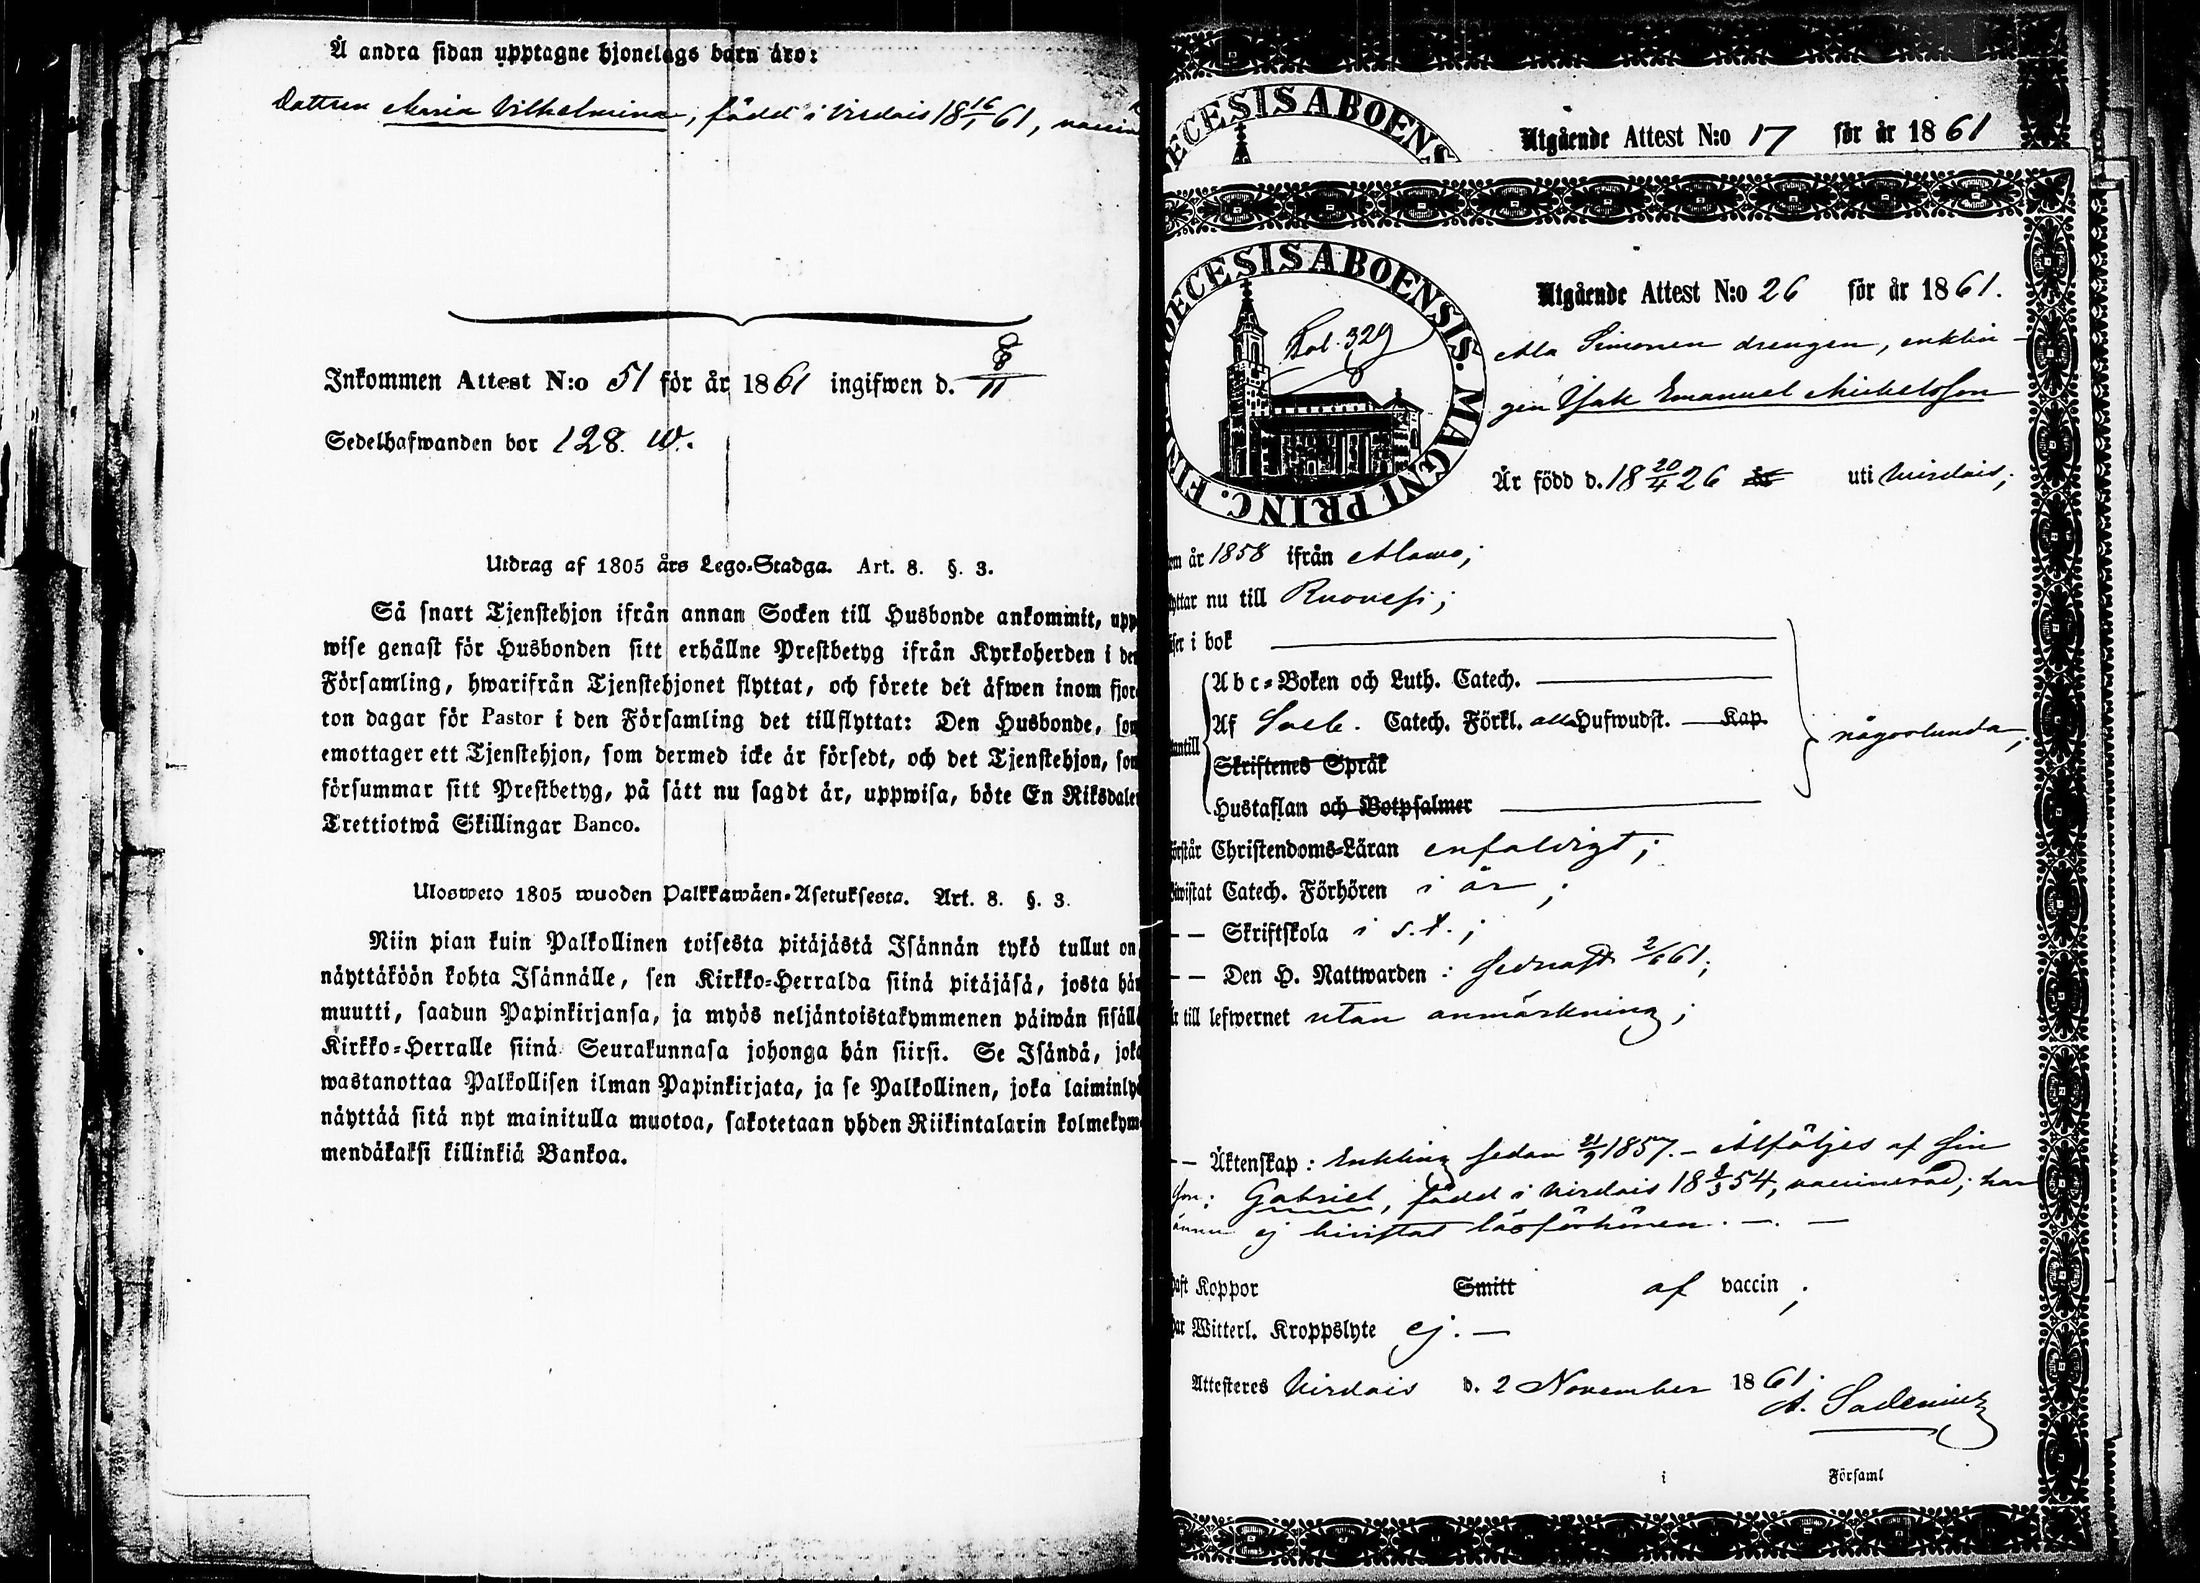 Å andra sidan upptagne hjonelags barn äro:
Dottren Maria Vilhelmina, född i Virdois 18 16/1 61,
Inkommen Attest N:o 51 för år 1861 ingifwen d. 8/11
Sedelhafwanden bor 128. W.
Utdrag af 1805 års Lego-Stadga. Art. 8. §. 3.
Så snart Tjenstehjon ifrån annan Socken till Husbonde ankommit, upp
wise genast för Husbonden sitt erhållne Prestbetyg ifrån Kyrkoherden i den
Församling, hwarifrån Tjenstehjonet flyttat, och förete det äfwen inom fjor
ton dagar för Pastor i den Församling det tillflyttat: Den Husbonde, som
emottager ett Tjenstehjon, som dermed icke är försedt, och det Tjenstehjon, som
försummar sitt Prestbetyg, på sätt nu sagdt är, uppwisa, böte En Riksdaler
Trettiotwå Skillingar Banco.
Ulosweto 1805 wuoden Palkkawäen-Asetuksesta. Art. 8. §. 3.
Niin pian kuin Palkollinen toisesta pitäjästä Isännän tykö tullut on,
näyttäköön kohta Isännälle, sen Kirkko-Herralda siinä pitäjäsä, josta hän
muutti, saadun Papinkirjansa, ja myös neljäntoistakymmenen päiwän sisällä
Kirkko-Herralle siinä Seurakunnasa johonga hän siirsi. Se Isändä, joka
wastanottaa Palkollisen ilman Papinkirjata, ja se Palkollinen, joka laiminlyö
näyttää sitä nyt mainitulla muotoa, sakotetaan yhden Riikintalarin kolmekym-
mendäkaksi killinkiä Bankoa.
ECESIS ABOENS
Utgående Attest N:o 17 för år 1861
OECESIS ABOENSIS. MAGNI PRINC. FIN
Fol. 329
Utgående Attest N:o 26 för år 1861.
Ala Simonen drengen, enklin-
gen Isak Emanuel Michelsson
Är född d. 18 20/4 26 uti Virdois;
om år 1858 ifrån Alawo;
yttar nu till Ruovesi;
äser i bok
Abc-Boken och Luth. Catech.
Af Catech. Förkl. alla Hufwudst. Kap.
Skriftenes Språk
någorlunda;
antill
Hustaflan och Botpsalmer
örstår Christendoms-Läran enfaldigt;
iwistat Catech. Förhören i år;
— — Skriftskola i s. t.;
— — Den H. Nattwarden: sednast 2/6 61;
är till lefwernet utan anmärkning;
— — Äktenskap: Enkling sedan 21/9 1857. – Åtföljes af sin
son: Gabriel, född i Virdois 18 2/3 54, vaccinerad; har
ännu ej biwistat läsförhören. —. —
haft Koppor Smitt af vaccin;
har Witterl. Kroppslyte ej. —
Attesteres Virdois d. 2 November 1861.
A.
i Församl